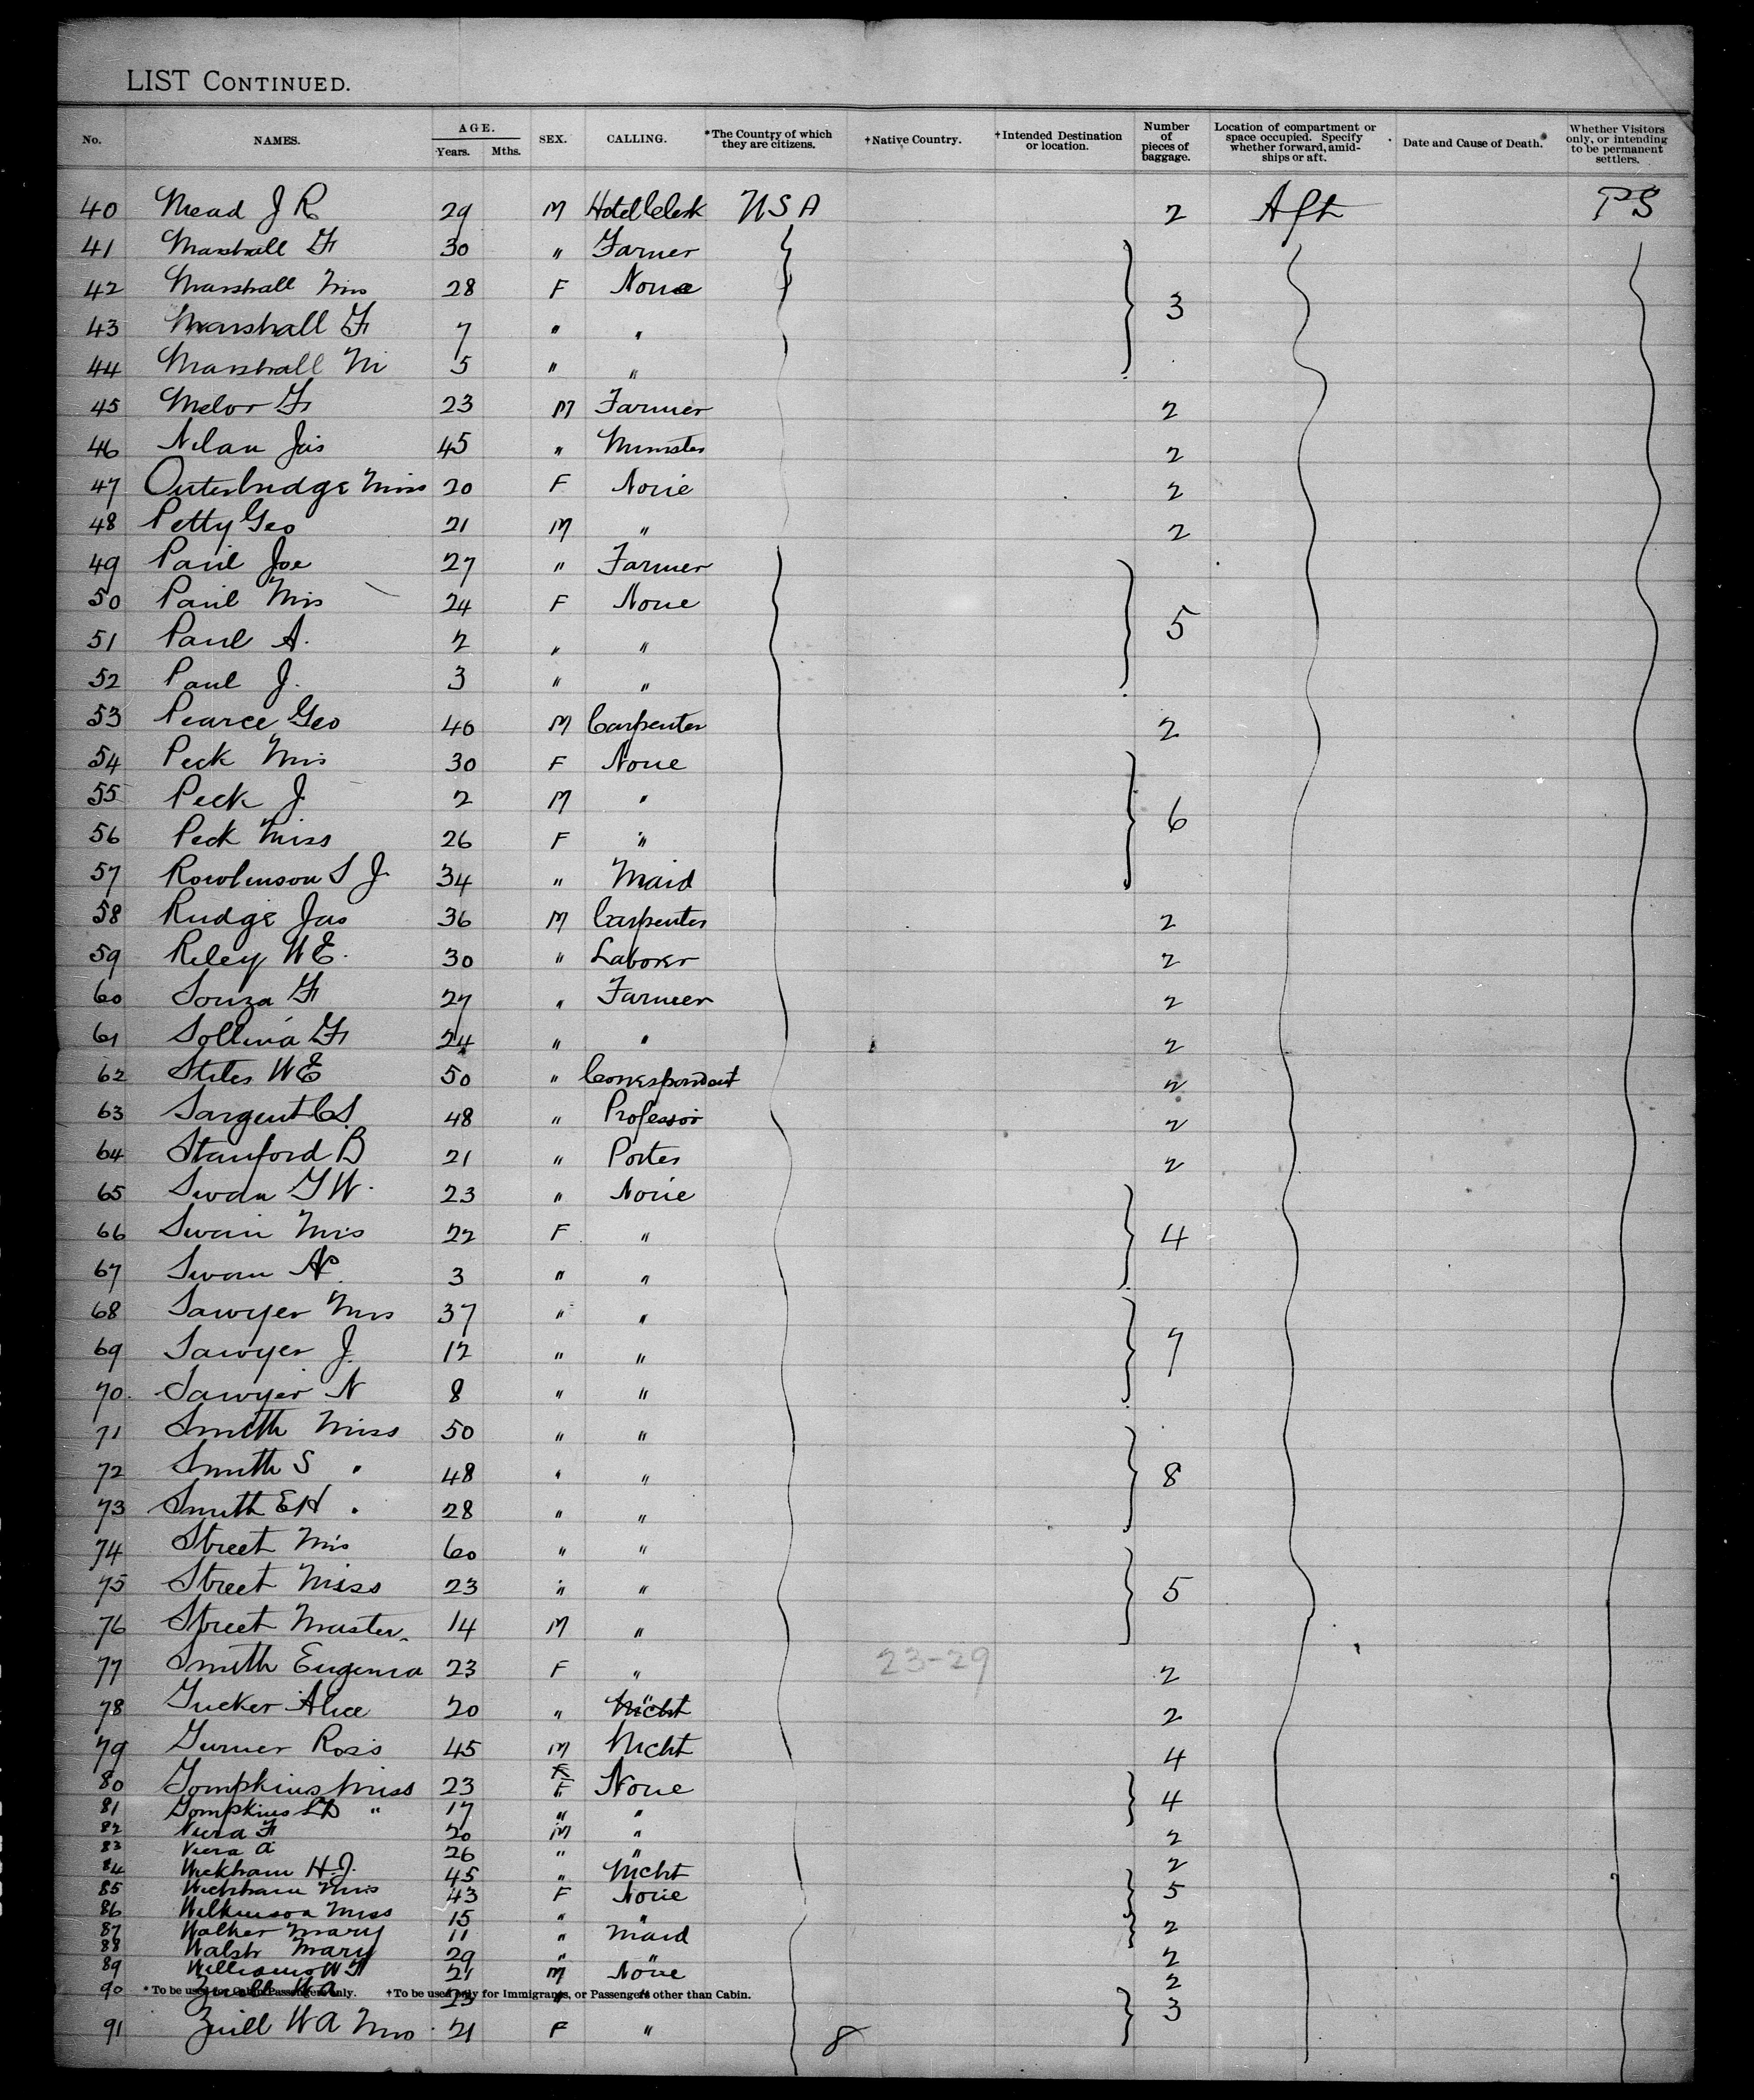 LIST CONTINUED.
No. NAMES. AGE. Years. Mths. SEX. CALLING. *The Country of which they are citizens. †Native Country. †Intended Destination or location. Number of pieces of baggage. Location of compartment or space occupied. Specify whether forward, amidships or aft. Date and Cause of Death. Whether Visitors only, or intending to be permanent settlers.
40 Mead J R 29 M Hotel Clerk USA 2 Aft PS
41 Marshall F 30 " Farmer
42 Marshall Mrs 28 F None 3
43 Marshall F 7 " "
44 Marshall M 5 " "
45 Melor F 23 M Farmer 2
46 Nilan Jas 45 " Minister 2
47 Outerbridge Miss 20 F None 2
48 Petty Geo 21 M " 2
49 Paul Joe 27 " Farmer
50 Paul Mrs 24 F None 5
51 Paul A. 2 " "
52 Paul J. 3 " "
53 Pearce Geo 40 M Carpenter 2
54 Peck Mrs 30 F None
55 Peck J 2 M " 6
56 Peck Miss 26 F "
57 Rowlinson S J 34 " Maid
58 Rudge Jas 36 M Carpenter 2
59 Riley W E. 30 " Laborer 2
60 Souza F 27 " Farmer 2
61 Sollina F 24 " " 2
62 Stiles W E 50 " Correspondent 2
63 Sargent C S. 48 " Professor 2
64 Stanford B 21 " Porter 2
65 Swan T W. 23 " None
66 Swan Mrs 22 F " 4
67 Swan 3 " "
68 Sawyer Mrs 37 " "
69 Sawyer J. 12 " " 7
70. Sawyer N 8 " "
71 Smith Miss 50 " "
72 Smith S " 48 " " 8
73 Smith E H " 28 " "
74 Street Mrs 60 " "
75 Street Miss 23 " " 5
76 Street Master 14 M "
77 Smith Eugenia 23 F " 23-29 2
78 Tucker Alice 20 " " 2
79 Turner Ross 45 M Mcht 4
80 Tompkins Miss 23 F None 4
81 Tompkins " 17 " "
82 Viera F 20 M " 2
83 Viera A 26 " " 2
84 Wickham H.J. 45 " Mcht
85 Wickham Mrs 43 F None 5
86 Wilkinson Miss 15 " "
87 Walker Mary 11 " Maid 2
88 Walsh Mary 29 " " 2
89 Williams W 21 M None 2
90 Zuill W A 23 " "
*To be used for Cabin Passengers only. †To be used only for Immigrants, or Passengers other than Cabin.
91 Zuill W A Mrs 21 F " 3
8